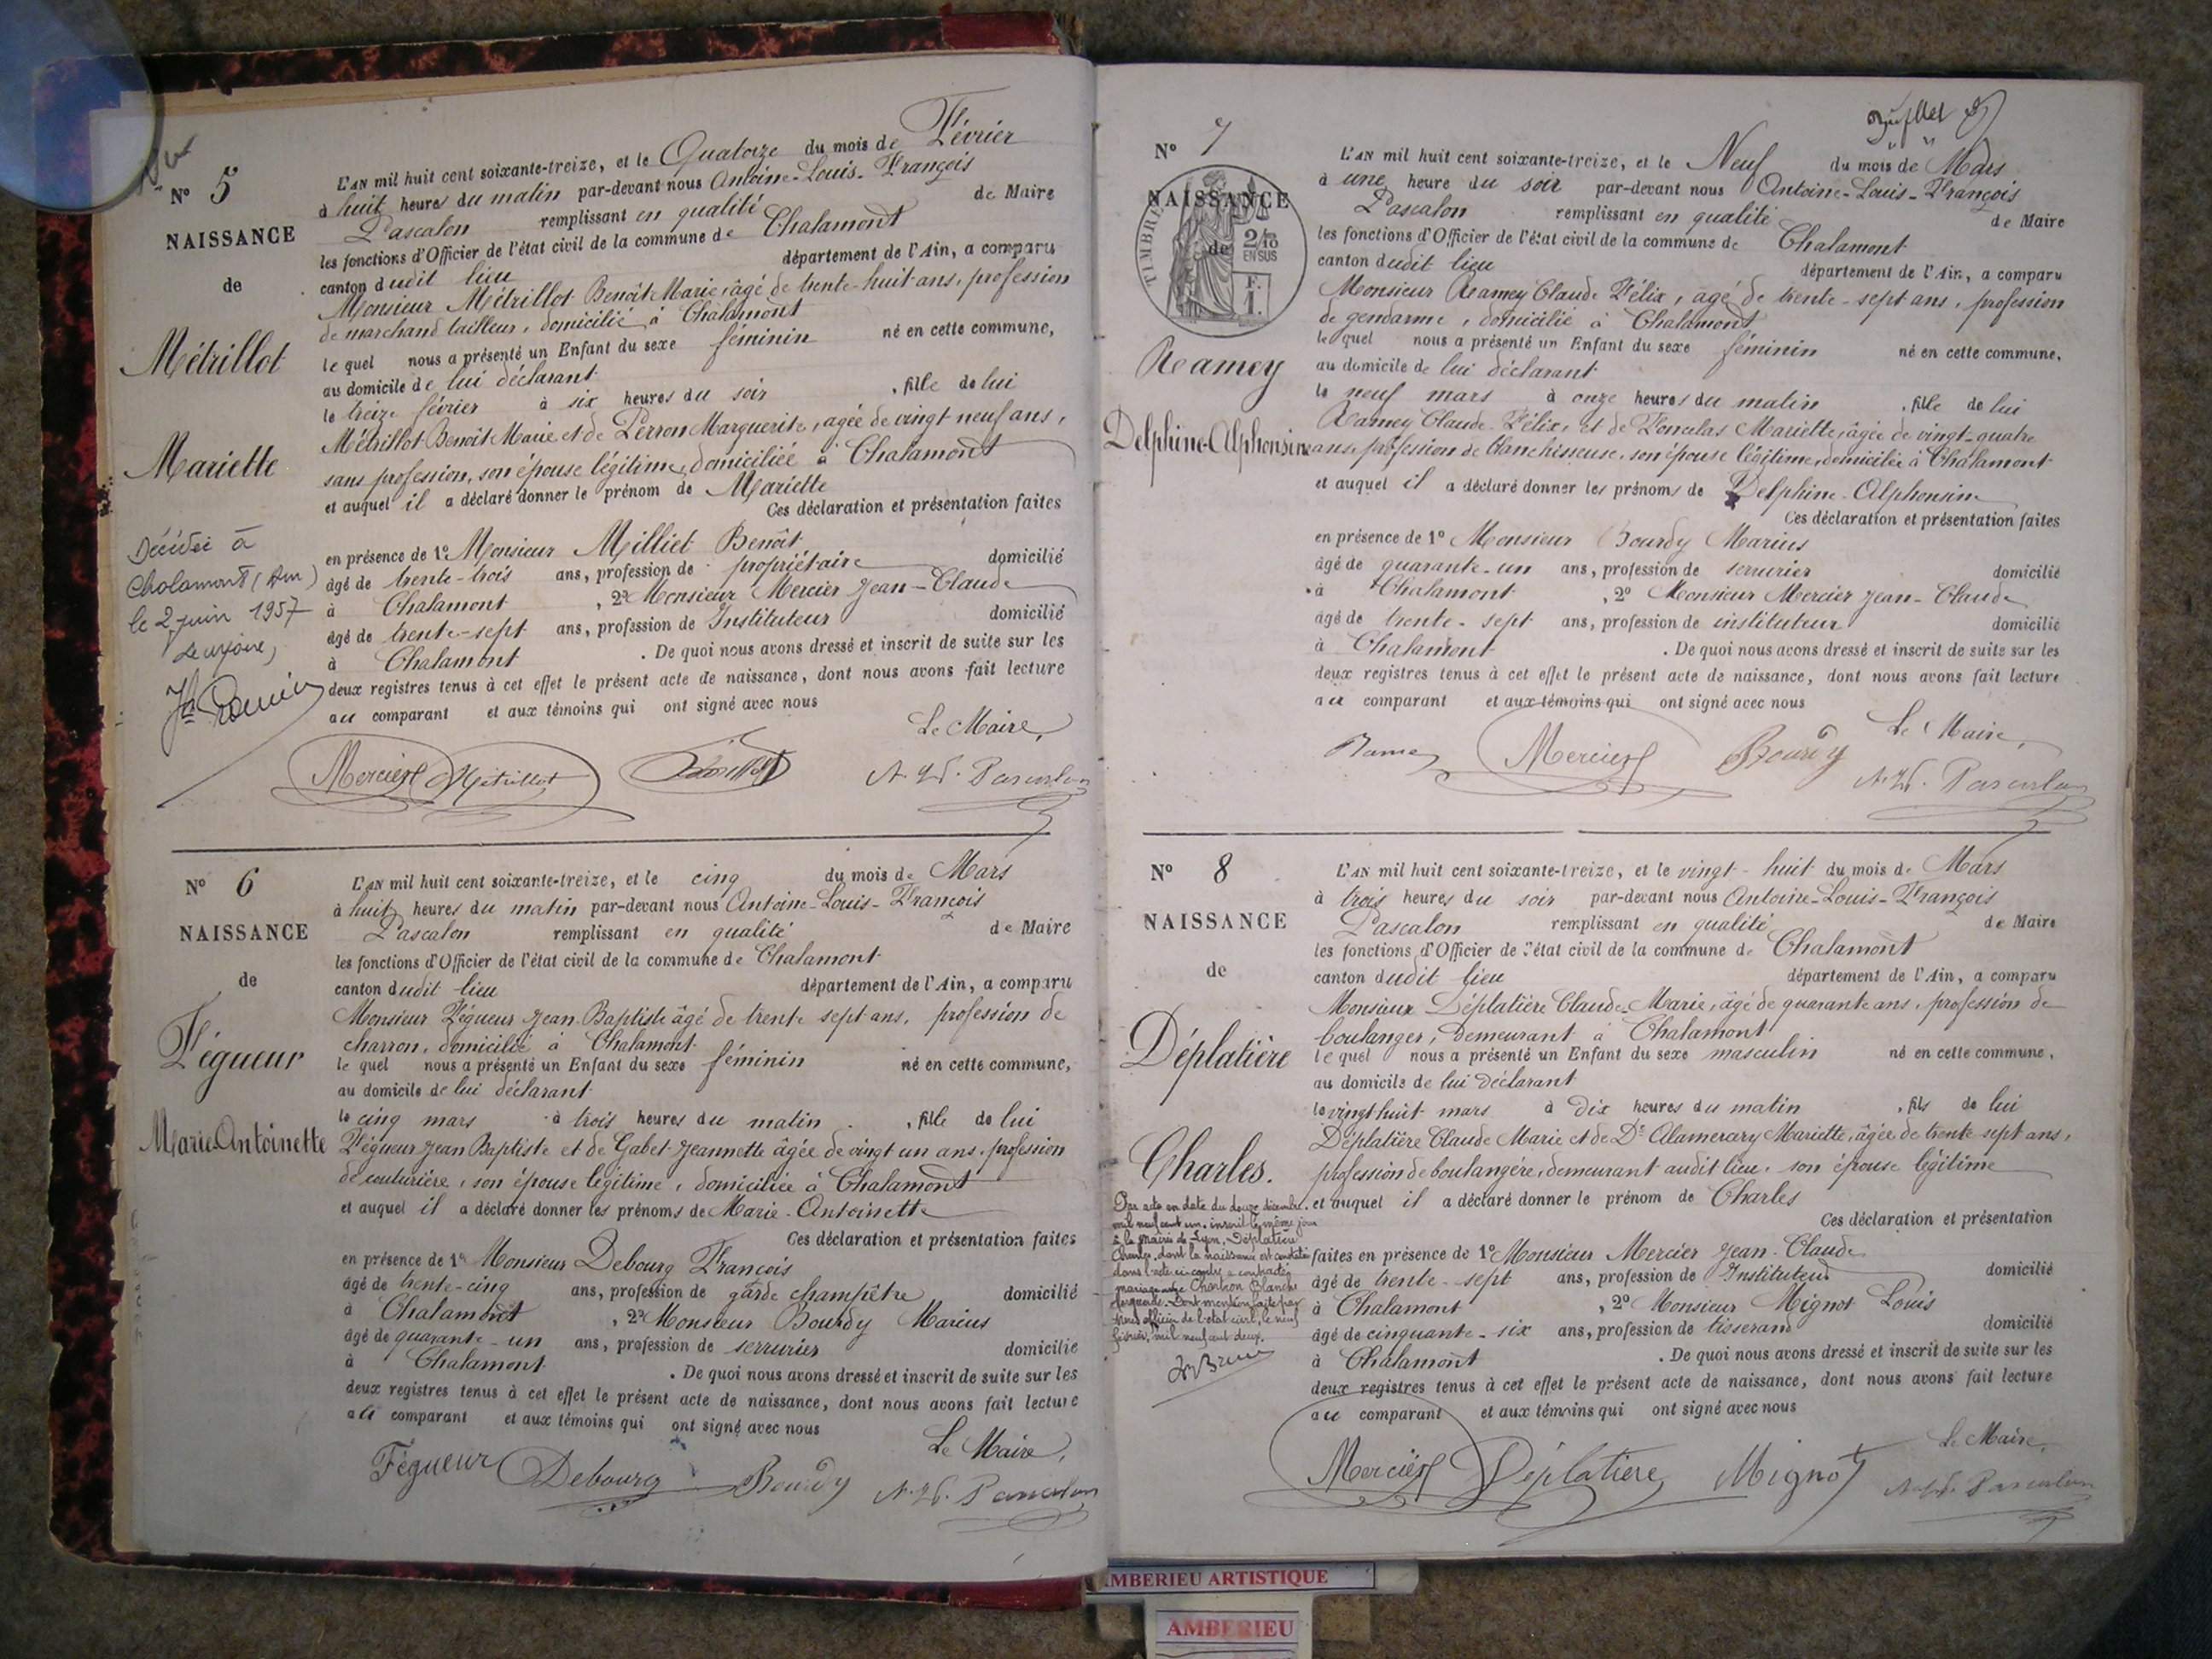 Nº 5
NAISSANCE
de
Métrillot
Mariette
Décédée à
Chalamont (Ain)
le 2 juin 1957
L'AN mil huit cent soixante-treize, et le Quatorze du mois de Février
à huit heures du matin par-devant nous Antoine-Louis-François
Pascalon remplissant en qualité de Maire
les fonctions d'Officier de l'état civil de la commune de Chalamont
canton dudit lieu département de l'Ain, a comparu
Monsieur Métrillot Benoît Marie, âgé de trente-huit ans, profession
de marchand tailleur, domicilié à Chalamont
lequel nous a présenté un Enfant du sexe féminin né en cette commune,
au domicile de lui déclarant
le treize février à six heures du soir, fille de lui
Métrillot Benoît Marie et de Perron Marguerite, agée de vingt neuf ans,
sans profession, son épouse légitime, domiciliée à Chalamont
et auquel il a déclaré donner le prénom de Mariette
Ces déclaration et présentation faites
en présence de 1º Monsieur Milliet Benoît
âgé de trente-trois ans, profession de propriétaire domicilié
à Chalamont, 2º Monsieur Mercier Jean-Claude
âgé de trente-sept ans, profession de Instituteur domicilié
à Chalamont. De quoi nous avons dressé et inscrit de suite sur les
deux registres tenus à cet effet le présent acte de naissance, dont nous avons fait lecture
au comparant et aux témoins qui ont signé avec nous
Le Maire,
Mercier Métrillot A. L. F. Pascalon
Nº 6
NAISSANCE
de
Fégueur
Marie-Antoinette
L'AN mil huit cent soixante-treize, et le cinq du mois de Mars
à huit heures du matin par-devant nous Antoine-Louis-François
Pascalon remplissant en qualité de Maire
les fonctions d'Officier de l'état civil de la commune de Chalamont
canton dudit lieu département de l'Ain, a comparu
Monsieur Fégueur Jean Baptiste âgé de trente sept ans, profession de
charron, domicilié à Chalamont
lequel nous a présenté un Enfant du sexe féminin né en cette commune,
au domicile de lui déclarant
le cinq mars à trois heures du matin, fille de lui
Fégueur Jean Baptiste et de Gabet Jeannette âgée de vingt un ans, profession
de couturière, son épouse légitime, domiciliée à Chalamont
et auquel il a déclaré donner les prénoms de Marie-Antoinette
Ces déclaration et présentation faites
en présence de 1º Monsieur Debourg François
âgé de trente-cinq ans, profession de garde champêtre domicilié
à Chalamont, 2º Monsieur Bourdy Marius
âgé de quarante-un ans, profession de serrurier domicilié
à Chalamont. De quoi nous avons dressé et inscrit de suite sur les
deux registres tenus à cet effet le présent acte de naissance, dont nous avons fait lecture
au comparant et aux témoins qui ont signé avec nous
Le Maire,
Fégueur Debourg Bourdy A. L. F. Pascalon
Nº 7
NAISSANCE
de
TIMBRE
2/10
EN SUS
F.
1.
Ramey
Delphine-Alphonsine
L'AN mil huit cent soixante-treize, et le Neuf du mois de Mars
à une heure du soir par-devant nous Antoine-Louis-François
Pascalon remplissant en qualité de Maire
les fonctions d'Officier de l'état civil de la commune de Chalamont
canton dudit lieu département de l'Ain, a comparu
Monsieur Ramey Claude Félix, agé de trente-sept ans, profession
de gendarme, domicilié à Chalamont
lequel nous a présenté un Enfant du sexe féminin né en cette commune,
au domicile de lui déclarant
le neuf mars à onze heures du matin, fille de lui
Ramey Claude Félix, et de Mariette, âgée de vingt-quatre
ans, profession de blanchisseuse, son épouse légitime, domiciliée à Chalamont
et auquel il a déclaré donner les prénoms de Delphine-Alphonsine
Ces déclaration et présentation faites
en présence de 1º Monsieur Bourdy Marius
âgé de quarante-un ans, profession de serrurier domicilié
à Chalamont, 2º Monsieur Mercier Jean-Claude
âgé de trente-sept ans, profession de instituteur domicilié
à Chalamont. De quoi nous avons dressé et inscrit de suite sur les
deux registres tenus à cet effet le présent acte de naissance, dont nous avons fait lecture
au comparant et aux témoins qui ont signé avec nous
Le Maire,
Ramey Mercier Bourdy A. L. F. Pascalon
Nº 8
NAISSANCE
de
Déplatière
Charles.
Par acte en date du douze décembre
mil neuf cent un, inscrit le même jour
à la mairie de Lyon, Déplatière
Charles, dont la naissance est constatée
dans l'acte ci-contre a contracté
mariage avec Blanche
Dont mention faite par
Nous officier de l'état civil, le neuf
février, mil neuf cent deux.
L'AN mil huit cent soixante-treize, et le vingt-huit du mois de Mars
à trois heures du soir par-devant nous Antoine-Louis-François
Pascalon remplissant en qualité de Maire
les fonctions d'Officier de l'état civil de la commune de Chalamont
canton dudit lieu département de l'Ain, a comparu
Monsieur Déplatière Claude-Marie, âgé de quarante ans, profession de
boulanger, demeurant à Chalamont
lequel nous a présenté un Enfant du sexe masculin né en cette commune,
au domicile de lui déclarant
le vingt huit mars à dix heures du matin, fils de lui
Déplatière Claude Marie et de De Alamercery Mariette, âgée de trente sept ans,
profession de boulangère, demeurant audit lieu, son épouse légitime
et auquel il a déclaré donner le prénom de Charles
Ces déclaration et présentation
faites en présence de 1º Monsieur Mercier Jean-Claude
âgé de trente-sept ans, profession de Instituteur domicilié
à Chalamont, 2º Monsieur Mignot Louis
âgé de cinquante-six ans, profession de tisserand domicilié
à Chalamont. De quoi nous avons dressé et inscrit de suite sur les
deux registres tenus à cet effet le présent acte de naissance, dont nous avons fait lecture
au comparant et aux témoins qui ont signé avec nous
Le Maire,
Mercier Déplatière Mignot A. L. F. Pascalon
AMBERIEU ARTISTIQUE
AMBERIEU